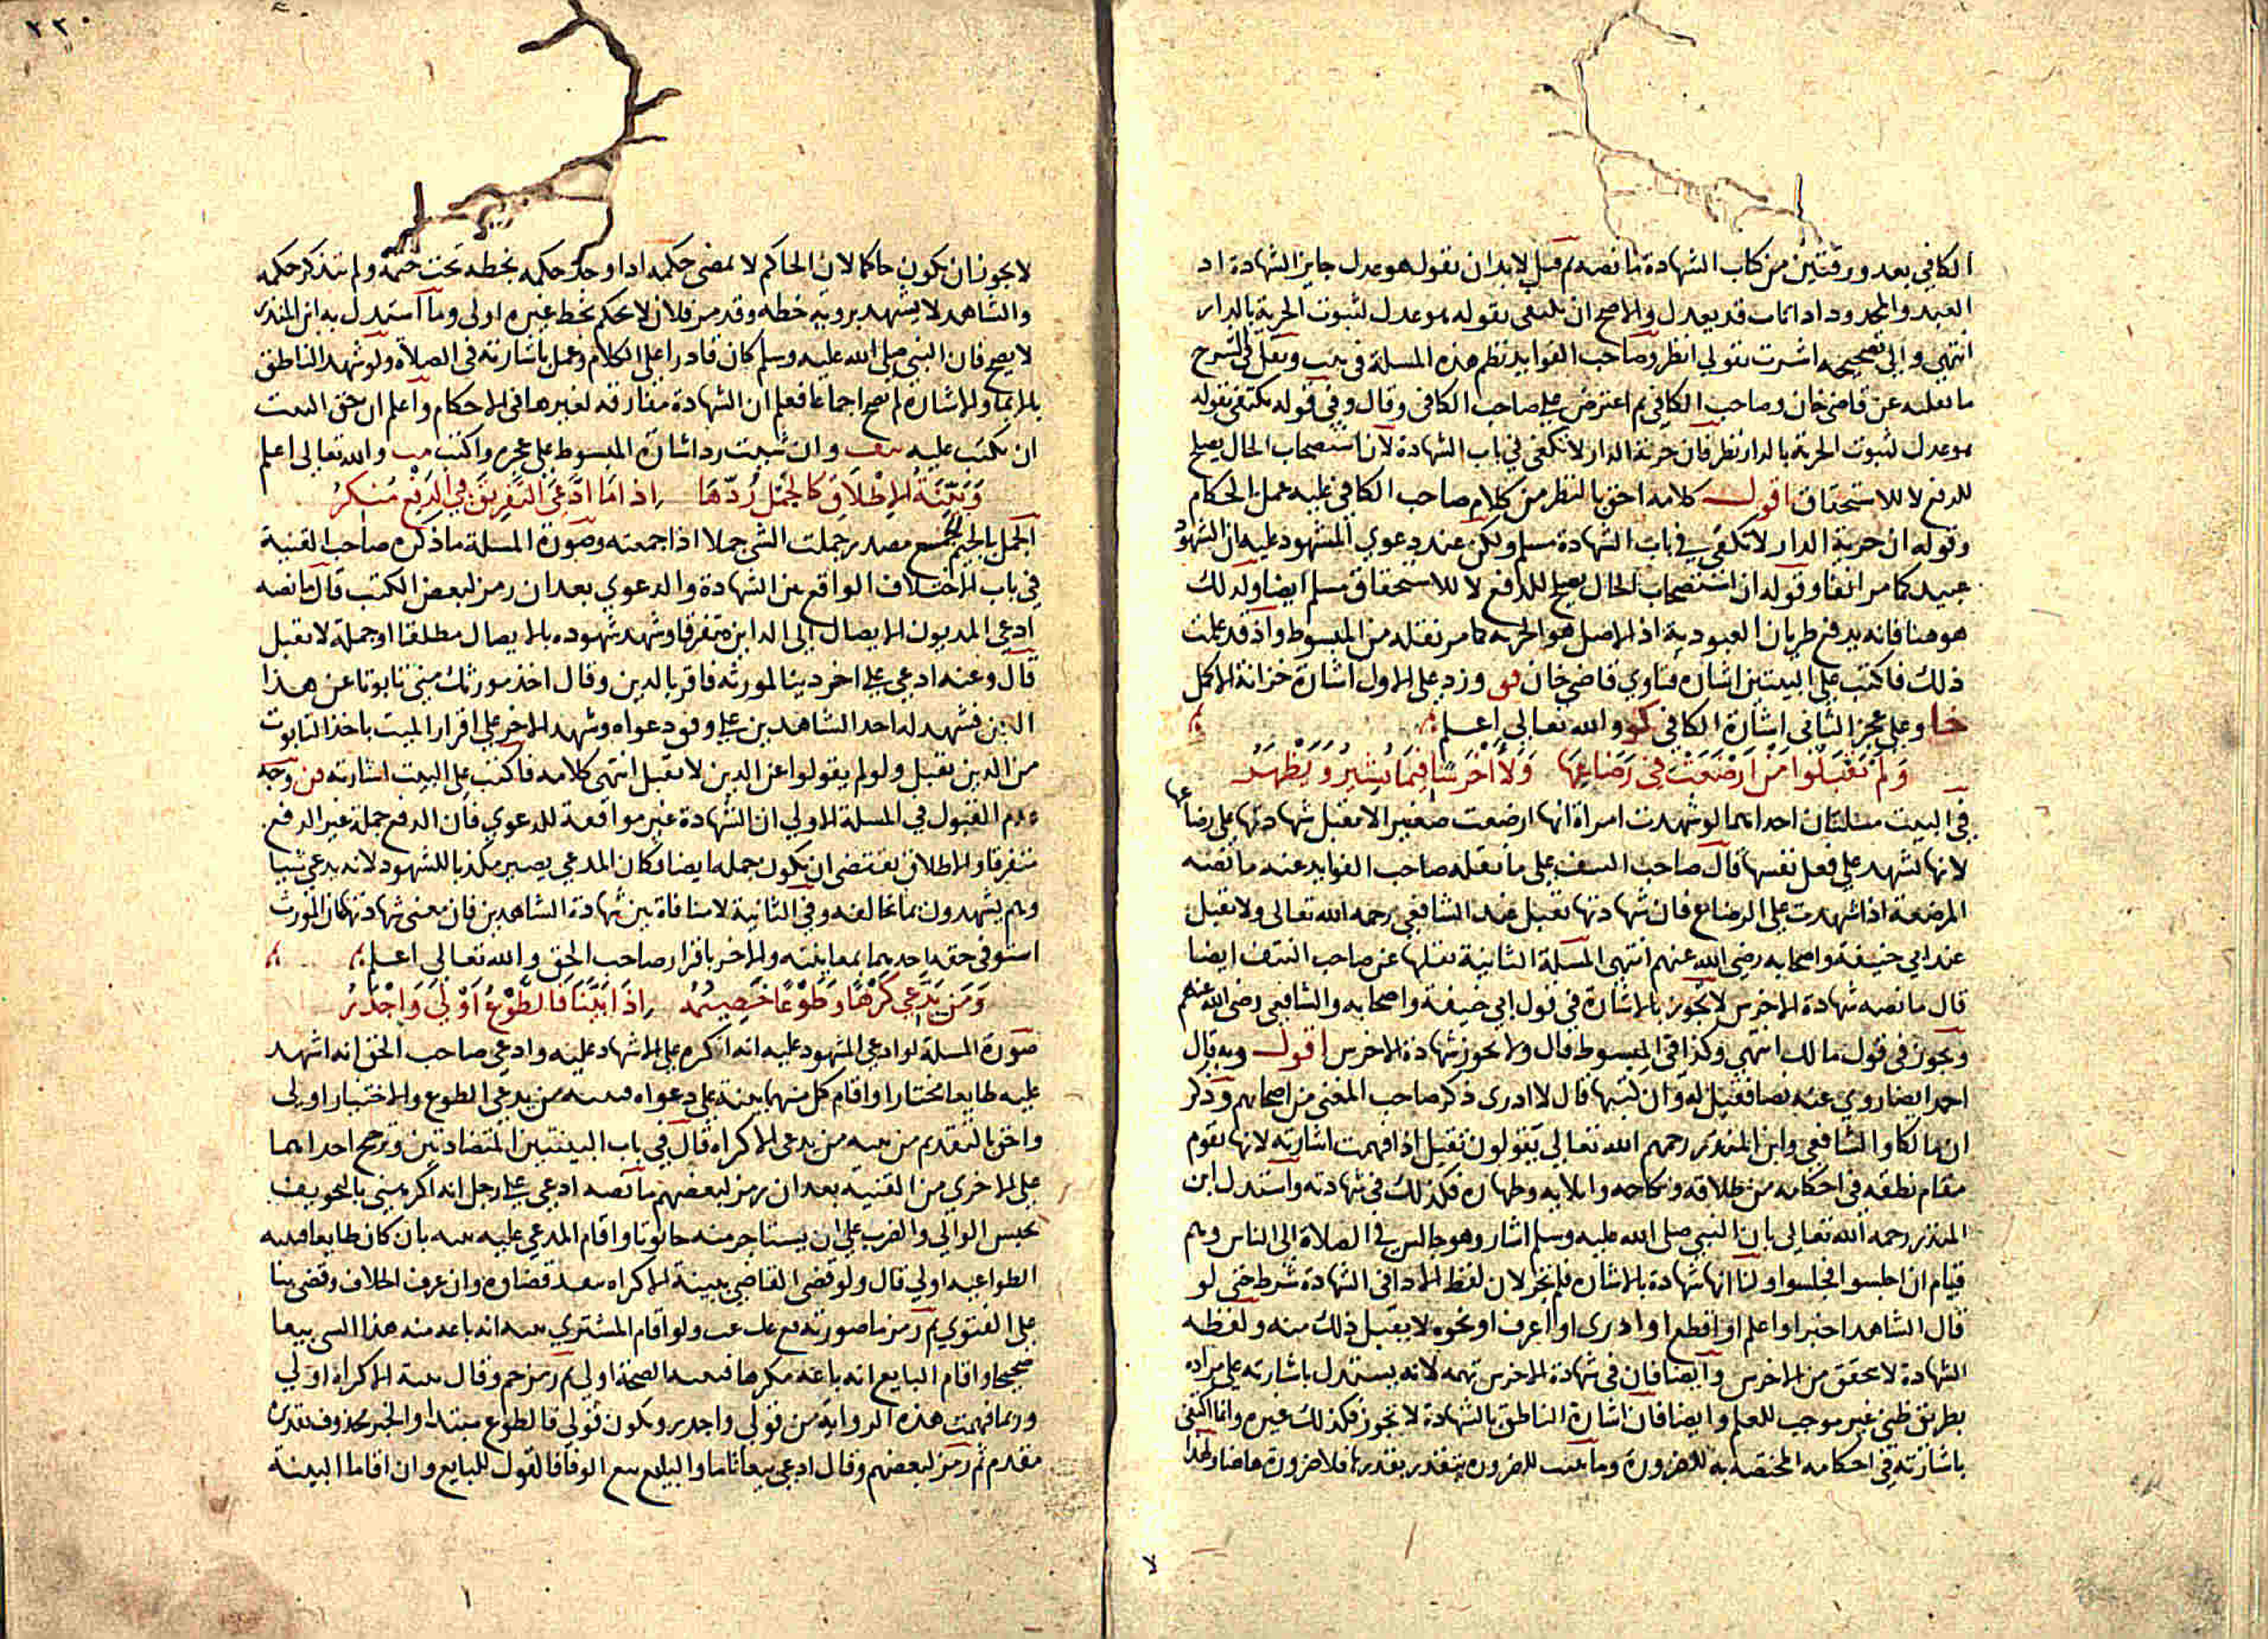 الكافي بعد ورقتين من كتاب الشهادة ما نصه ثم قيل لا بد ان نقول هو عدل جايز الشهادة اذ
العبد والمحدود اذا تاب قد يعدل والاصح ان يكتفي بقوله هو عدل لثبوت الحرية بالدار
انتهي والي تصحيحه اشرت بقولي انظر وصاحب الفوايد نظم هذه المسلة في بيت ونقل في الشرح
ما نقلته عن قاضي خان وصاحب الكافي ثم اعترض علي صاحب الكافي وقال وفي قوله يكتفي بقوله
هو عدل لثبوت الحرية بالدار نظر فان حرية الدار لا تكفي في باب الشهادة لان استصحاب الحال يصلح
للدفع لا للاستحقاق اقول كلامه احق بالنظر من كلام صاحب الكافي عليه عمل الحكام
وقوله ان حرية الدار لا تكفي في باب الشهادة مسلم ولكن عند دعوي المشهود عليه ان الشهود
عبيد كما مر انفا وقوله ان استصحاب الحال يصلح للدفع لا للاستحقاق مسلم ايضا وكذلك
هو هنا فانه يدفع طريان العبودية اذ الاصل هو الحرية كما مر نقله من المبسوط واذ قد علمت
ذلك فاكتب علي البيتين اشارة فتاوي قاضي خان وزد علي الاول اشارة خزانة الاكمل
خا وعلي عجز الثاني اشارة الكافي كو والله تعالي اعلم
وَلَمْ تَقْبَلُوا مَنْ اَرْضَعَتْ فِي رَضَاعِهَا وَلَا اَخْرَسًا فِيمَا يُشِيرُ وَيُظْهِرُ
في البيت مسلتان احداهما لو شهدت امراة انها ارضعت صغيرا لا تقبل شهادتها علي رضاعها
لانها تشهد علي فعل نفسها قال صاحب النتف علي ما نقله صاحب الفوايد عنه ما نصه
المرضعة اذا شهدت علي الرضاع فان شهادتها تقبل عند الشافعي رحمه الله تعالي ولا تقبل
عند ابي حنيفة واصحابه رضي الله عنهم انتهي المسلة الثانية نقلها عن صاحب النتف ايضا
قال ما نصه شهادة الاخرس لا تجوز بالاشارة في قول ابي حنيفة واصحابه والشافعي رضي الله عنهم
وتجوز في قول مالك انتهي وكذا في المبسوط قال ولا تجوز شهادة الاخرس اقول وبه قال
احمد ايضا روي عنه نصا فقيل له وان كتبها قال لا ادري ذكر صاحب المغني من اصحابهم وذكر
ان مالكا والشافعي وابن المنذر رحمهم الله تعالي يقولون تقبل اذا فهمت اشارته لانها تقوم
مقام نطقه في احكامه من طلاقه ونكاحه وايلايه وظهاره فكذلك في شهادته واستدل ابن
المنذر رحمه الله تعالي بان النبي صلي الله عليه وسلم اشار وهو جالس في الصلاة الي الناس وهم
قيام ان اجلسوا فجلسوا ولنا انها شهادة بالاشارة فلم تجز لان لفظ الاداء في الشهادة شرط حتي لو
قال الشاهد اخبر او اعلم او اقطع او ادري او اعرف او نحوه لا يقبل ذلك منه ولفظه
الشهادة لا تحقق من الاخرس وايضا فان في شهادة الاخرس تهمة لانه يستدل باشارته علي مراده
بطريق ظني غير موجب للعلم وايضا فان اشارة الناطق بالشهادة لا تجوز فكذلك غيره وانما اكتفي
باشارته في احكامه المختصة به للضرورة وما يثبت للضرورة يتقدر بقدرها فلا ضرورة هاهنا ولهذا
لا يجوز ان يكون حاكما لان الحاكم لا يمضي حكمه اذا وجد حكمه بخطه تحت ختمه ولم يتذكر حكمه
والشاهد لا يشهد بروية خطه وقد مر فلان لا يحكم بخط غيره اولي وما استدل به ابن المنذر
لا يصح فان النبي صلي الله عليه وسلم كان قادرا علي الكلام وعمل باشارته في الصلاة ولو شهد الناطق
بالايماء والاشارة لم يصح اجماعا فعلم ان الشهادة مفارقة لغيرها في الاحكام واعلم ان حق البيت
ان يكتب عليه نتف وان شيت رد اشارة المبسوط علي عجزه واكتب مب والله تعالي اعلم
وَبَيِّنَةُ الاِطْلَاقِ كَالْجَمْلِ رُدَّهَا اِذَا مَا ادَّعَي التَّفْرِيقَ فِي الدَّفْعِ مُنْكِرُ
الجمل بالجيم الجمع مصدر جملت الشي جملا اذا جمعته وصورة المسلة ما ذكره صاحب القنية
في باب الاختلاف الواقع بين الشهادة والدعوي بعد ان رمز لبعض الكتب قال ما نصه
ادعي المديون الايصال الي الداين متفرقا وشهد شهوده بالايصال مطلقا او جملة لا تقبل
قال وعنه ادعي علي اخر دينا لمورثه فاقر بالدين وقال اخذ مورثك مني تابوتا عن هذا
الدين فشهد له احد الشاهدين علي وفق دعواه وشهد الاخر علي اقرار الميت باخذ التابوت
من الدين تقبل ولو لم يقولوا عن الدين لا تقبل انتهي كلامه فاكتب علي البيت اشارته وجه
عدم القبول في المسلة الاولي ان الشهادة غير موافقة للدعوي فان الدفع جملة غير الدفع
متفرقا والاطلاق يقتضي ان يكون جملة ايضا وكان المدعي يصير مكذبا للشهود لانه يدعي شيا
وهم يشهدون بما يخالفه وفي الثانية لا منافاة بين شهادة الشاهدين فان معني شهادتهما ان المورث
استوفي حقه احدهما بمعاينته والاخر باقرار صاحب الحق والله تعالي اعلم
وَمَنْ يَدَّعِي كَرْهًا وَطَوْعًا خَصِيمُهُ اِذَا بَيَّنَا فَالطَّوْعُ اَوْلَي وَاَجْدَرُ
صورة المسلة لو ادعي المشهود عليه انه اكره علي الاشهاد عليه وادعي صاحب الحق انه اشهد
عليه طايعا مختارا واقام كل منهما بينة علي دعواه فبينة من يدعي الطوع والاختيار اولي
واحق بالتقديم من بينة من يدعي الاكراه قال في باب البينتين المتضادتين وترجح احداهما
علي الاخري من القنية بعد ان رمز لبعضهم ما نصه ادعي علي رجل انه اكرهني بالتخويف
بحبس الوالي والضرب علي ان يستاجر منه حانوتا واقام المدعي عليه بينة بان كان طايعا فبينة
الطواعية اولي قال ولو قضي القاضي ببينة الاكراه ينفذ قضاوه وان عرف الخلاف وقضي بنا
علي الفتوي ثم رمز ما صورته ولو اقام المشتري بينة انه باعه منه هذا الشي بيعا
صحيحا واقام البايع انه باعه مكرها فبينة الصحة اولي ثم رمز حم وقال بينة الاكراه اولي
وربما فهمت هذه الرواية من قولي واجدر ويكون قولي فالطوع مبتدا والخبر محذوف تقديره
مقدم ثم رمز لبعضهم وقال ادعي بيعا تاما والبايع بيع الوفا فالقول للبايع وان اقاما البينة
٢٢٠